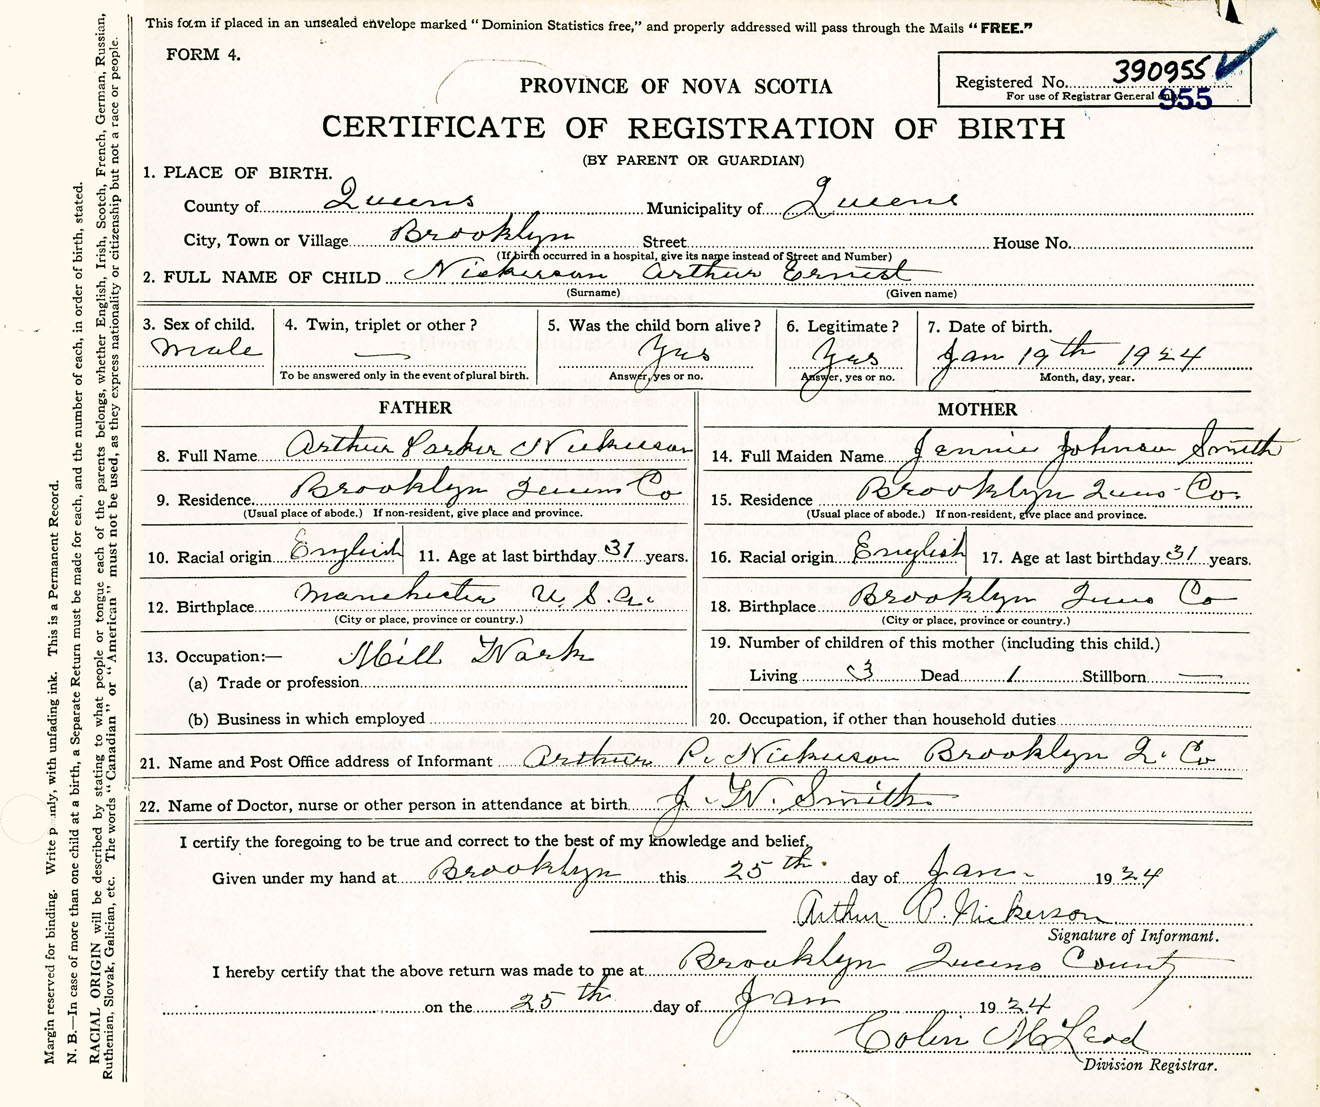 This form if placed in an unsealed envelope marked "Dominion Statistics free," and properly addressed will pass through the Mails "FREE."
FORM 4.
Registered No. 390955
For use of Registrar General only
955
PROVINCE OF NOVA SCOTIA
CERTIFICATE OF REGISTRATION OF BIRTH
(BY PARENT OR GUARDIAN)
1. PLACE OF BIRTH.
County of Queens Municipality of Queens
City, Town or Village Brooklyn Street House No.
(If birth occurred in a hospital, give its name instead of Street and Number)
2. FULL NAME OF CHILD Nickerson Arthur Ernest
(Surname) (Given name)
3. Sex of child. 4. Twin, triplet or other? 5. Was the child born alive? 6. Legitimate? 7. Date of birth.
Male — Yes Yes Jan 19th 1924
To be answered only in the event of plural birth. Answer, yes or no. Answer, yes or no. Month, day, year.
FATHER MOTHER
8. Full Name Arthur Parker Nickerson 14. Full Maiden Name Jennie Johnson Smith
9. Residence Brooklyn Queens Co 15. Residence Brooklyn Quns Co.
(Usual place of abode.) If non-resident, give place and province. (Usual place of abode.) If non-resident, give place and province.
10. Racial origin English 11. Age at last birthday 31 years. 16. Racial origin English 17. Age at last birthday 31 years.
12. Birthplace Manchester U.S.A. 18. Birthplace Brooklyn Quns Co
(City or place, province or country.) (City or place, province or country.)
13. Occupation:— Mill Work 19. Number of children of this mother (including this child.)
(a) Trade or profession Living 3 Dead 1 Stillborn —
(b) Business in which employed 20. Occupation, if other than household duties
21. Name and Post Office address of Informant Arthur P. Nickerson Brooklyn Q. Co
22. Name of Doctor, nurse or other person in attendance at birth J. W. Smith
I certify the foregoing to be true and correct to the best of my knowledge and belief.
Given under my hand at Brooklyn this 25th day of Jan. 1924
Arthur P. Nickerson
Signature of Informant.
I hereby certify that the above return was made to me at Brooklyn Queens County
on the 25th day of Jan 1924
Colin McLeod
Division Registrar.
Margin reserved for binding. Write p unly, with unfading ink. This is a Permanent Record.
N. B.—In case of more than one child at a birth, a Separate Return must be made for each, and the number of each, in order of birth, stated.
RACIAL ORIGIN will be described by stating to what people or tongue each of the parents belongs, whether English, Irish, Scotch, French, German, Russian,
Ruthenian, Slovak, Galician, etc. The words "Canadian" or "American" must not be used, as they express nationality or citizenship but not a race or people.